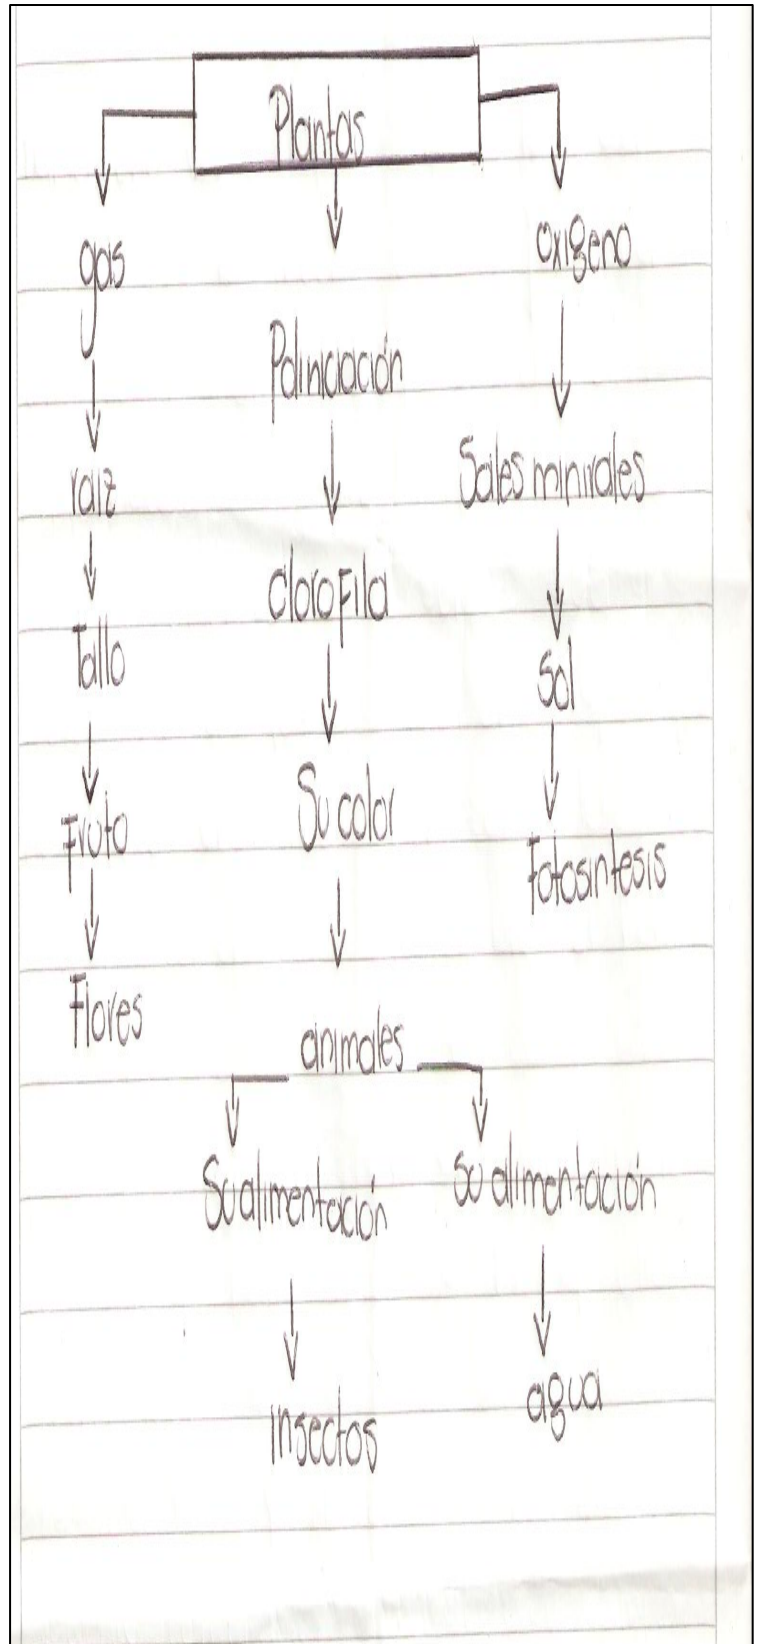 Plantas
gas
raiz
Tallo
Fruto
Flores
Poliniciación
clorofila
Su color
animales
Su alimentación
insectos
su alimentación
agua
oxigeno
Sales minirales
Sol
Fotosintesis